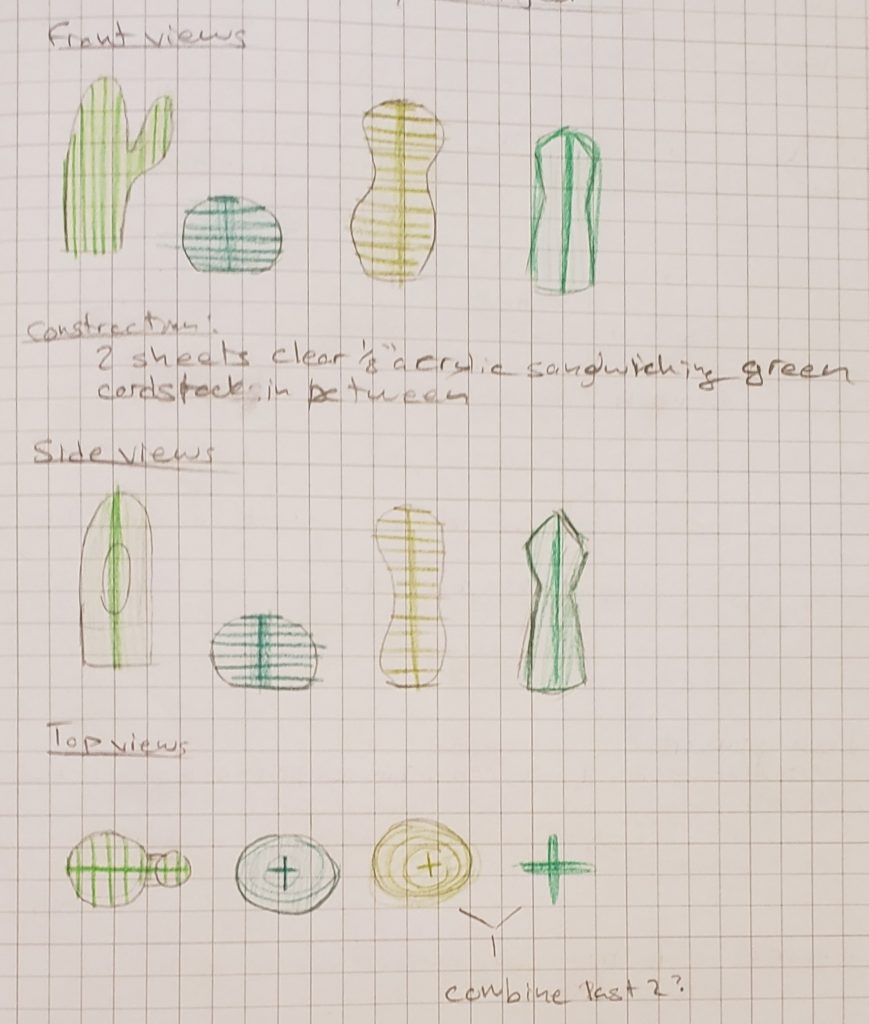 Front views
Construction:
2 sheets clear 1/8" acrylic sandwiching green
cardstock in between
Side views
Top views
combine last 2?